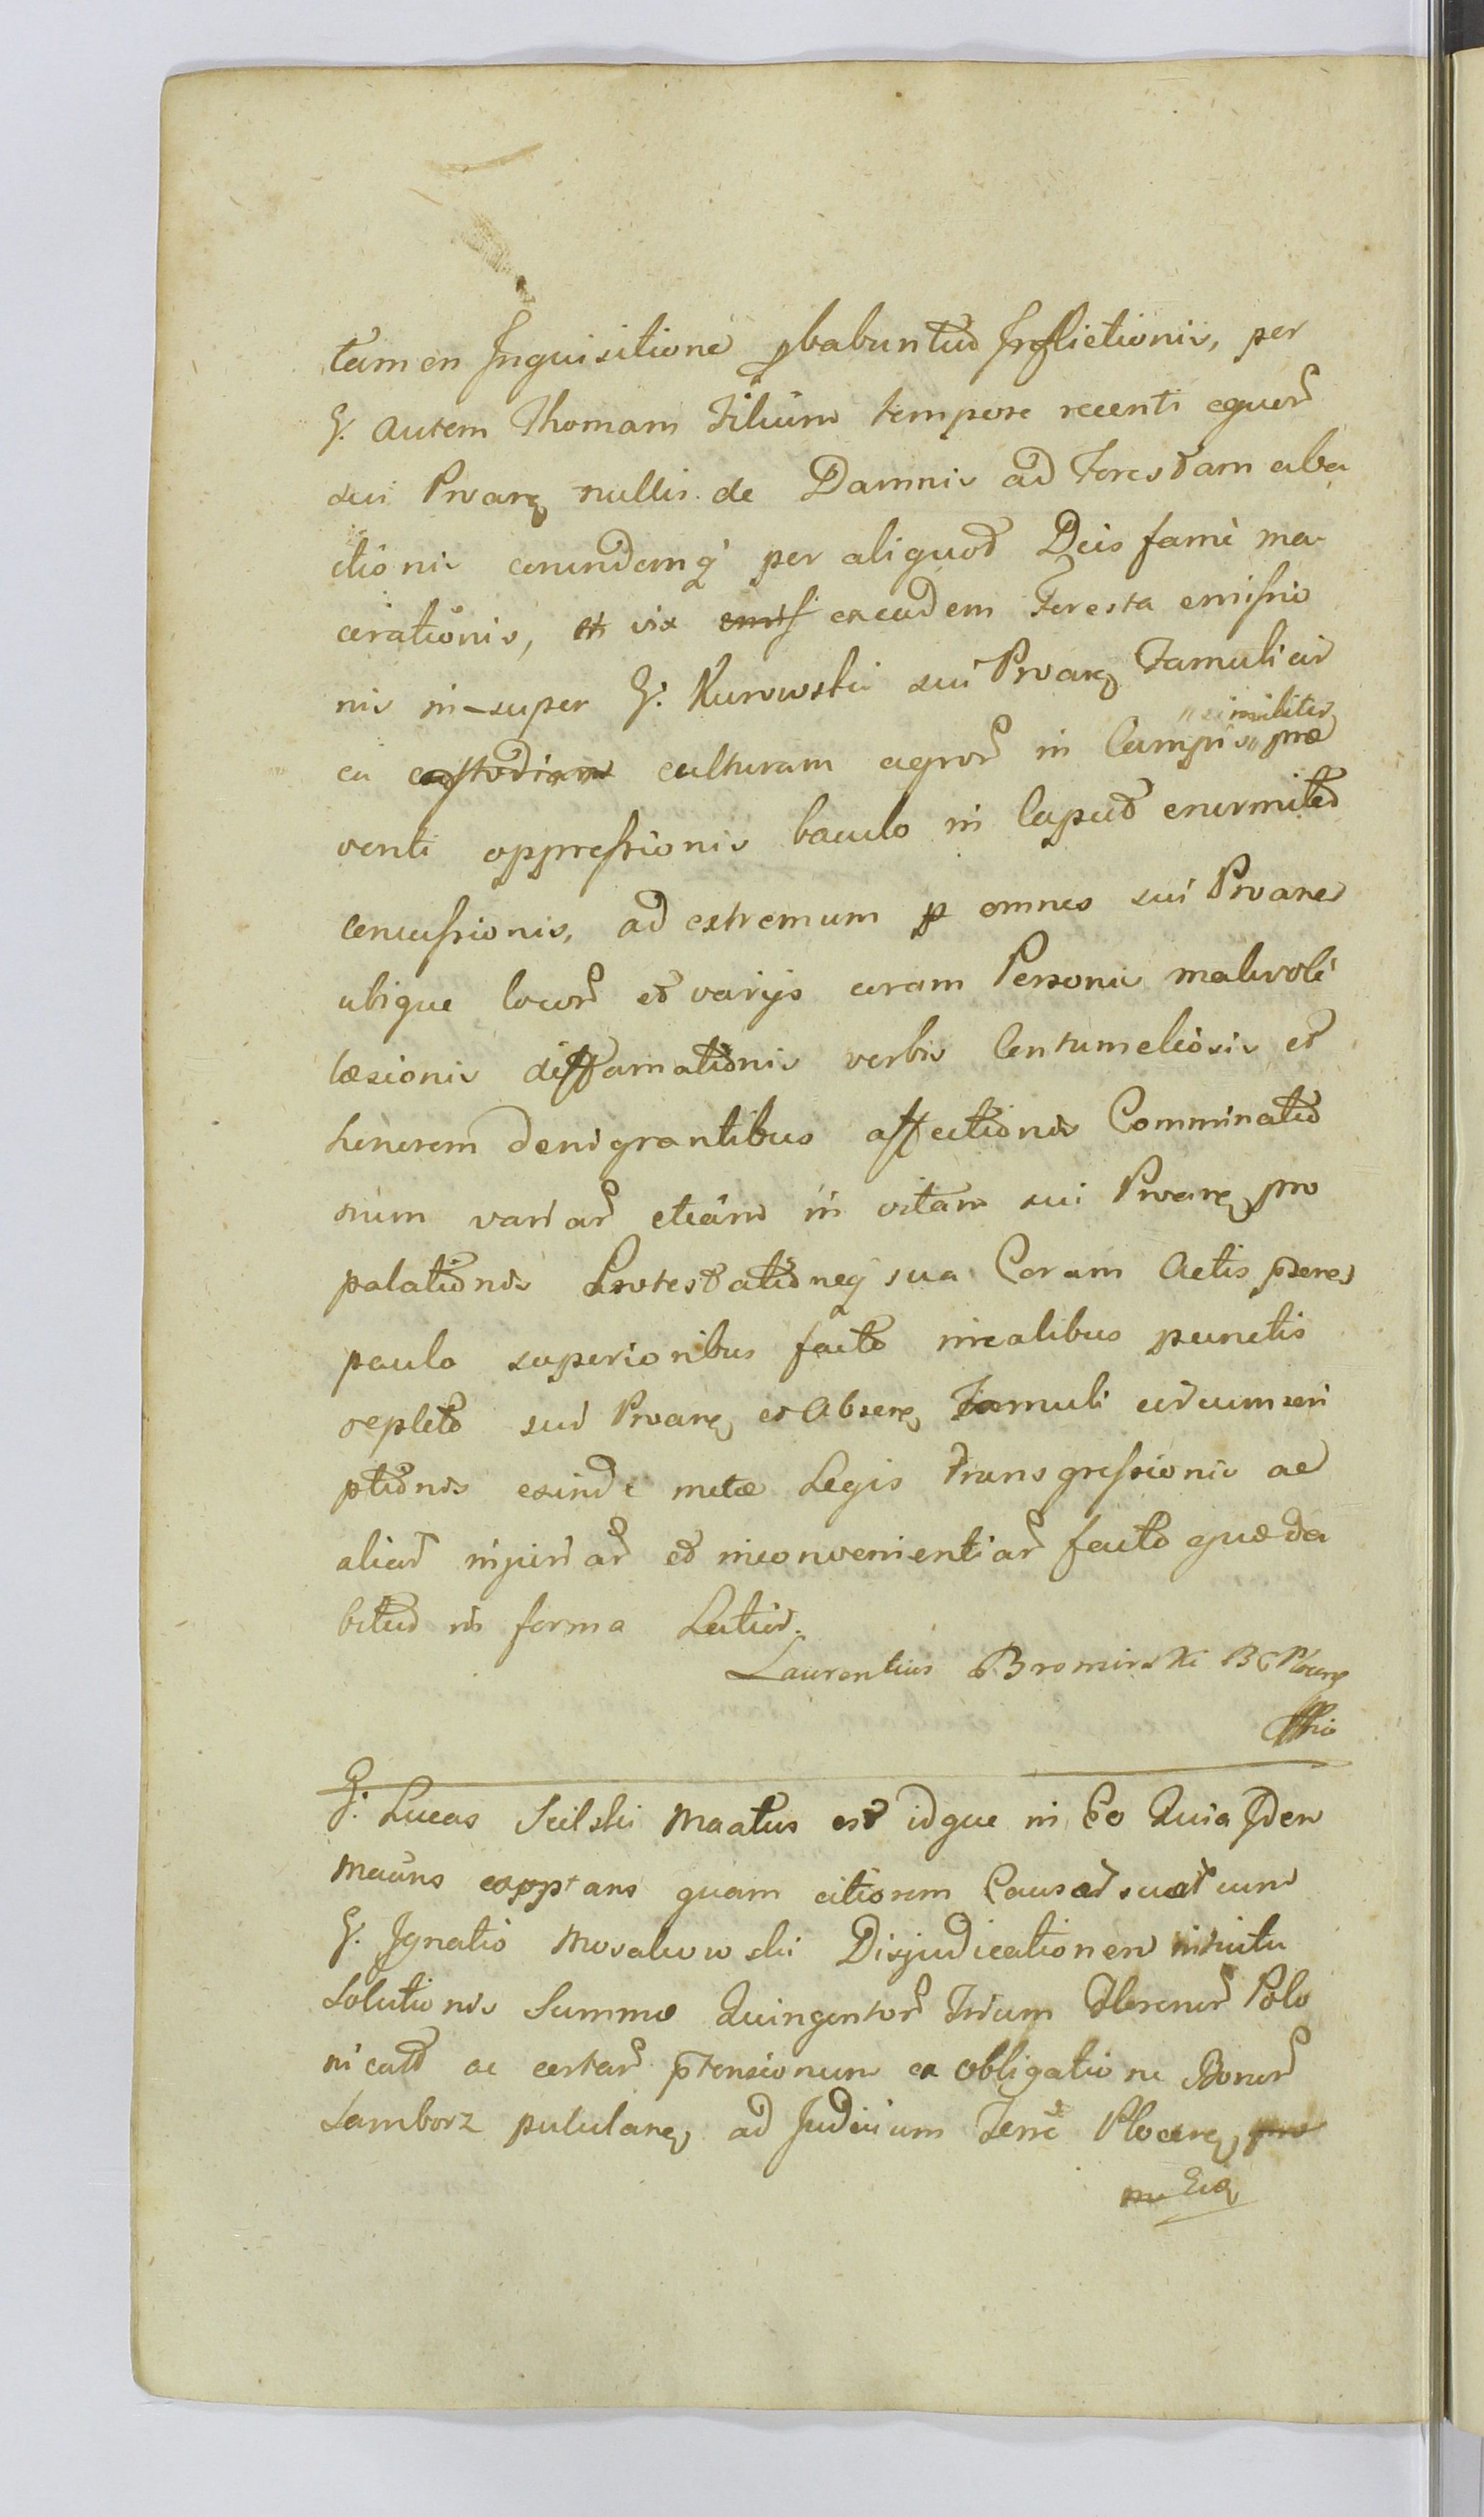 tamen Inquisitione pbabuntur Inflictionis, per
G. autem Thomam Filium tempore recenti equor
sui Proare nullis de Damnis ad Forestam aba
ctionis eorundemq per aliquod Dies fame ma-
cerationis, et vix emis ex eadem Foresta emissio
nis in-super G. Kurowski sui Proare Famuli cir
ca custodiam culturam agror in Campis similiter præ
venti oppressionis baculo in Caput enormiter
concussionis, ad extremum p omnes sui Proare
ubique locor et varijs coram Personis malevoli
læsionis diffamationis verbis Contumeliosis et
honorem denigrantibus affectionis Comminatio
num variar etiam in vitam sui Proare pro
palationis Protestationeq sua Coram Actis pseres
paulo superioribus facto irrealibus punctis
repleto sui Proare et Absere Famuli circumscri
ptionis exinde metæ Legis transgressionis ac
aliar injuriar et inconvenientiar facto quæ da
bitur in forma Latior.
Laurentius Bromirski B G Plocen
G. Lucas Scilski Maatus est idque in Eo Quia Idem
Maans exoptans quam citiorem Causæ suæ cum
G. Ignatio Mosakowski Disjudicationem intuitu
Solutionis Summæ Quingentor Trium Florenor Polo
nical ac certar ptensionum ex obligatione Bonor
Samborz pululare ad Judicium Terre Plocen pro